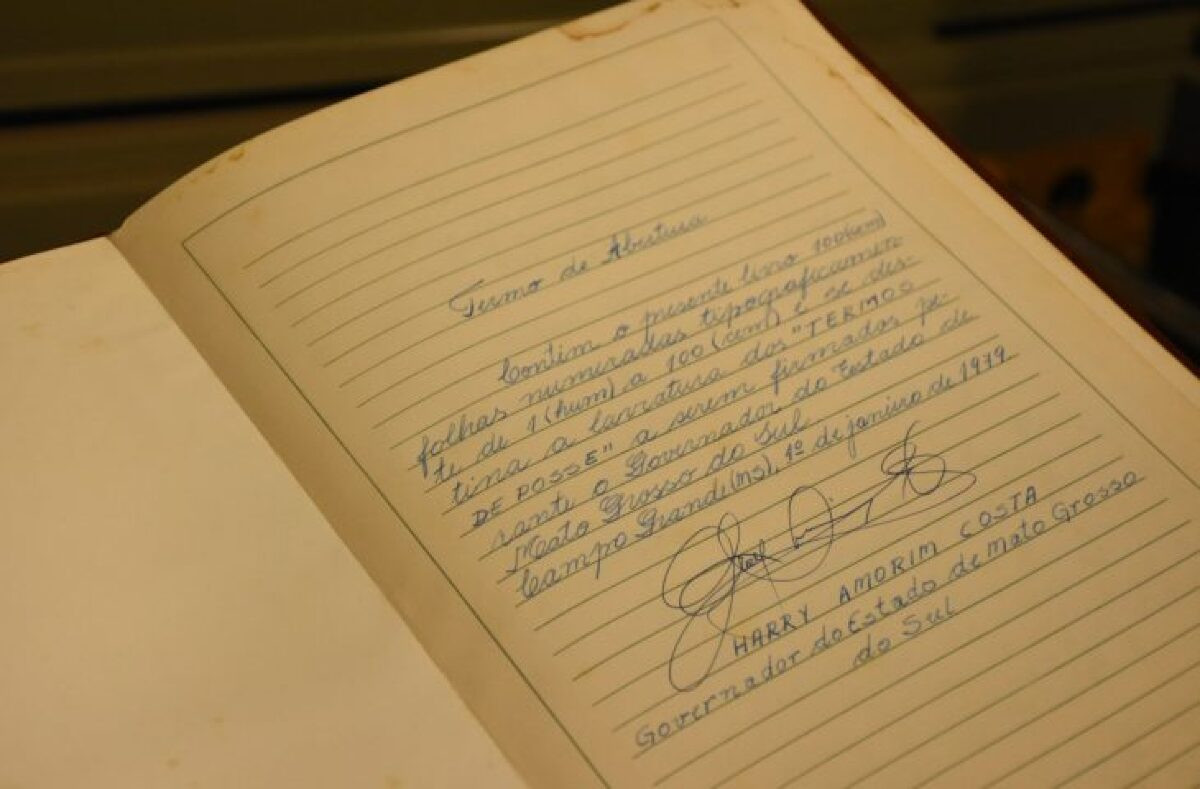 Termo de Abertura
Contém o presente livro 100 (cem)
folhas numeradas tipograficamen-
te de 1 (hum) a 100 (cem) e se des-
tina a lavratura dos "TERMOS
DE POSSE" a serem firmados pe-
rante o Governador do Estado de
Mato Grosso do Sul.
Campo Grande (MS), 1º de janeiro de 1979
HARRY AMORIM COSTA
Governador do Estado de Mato Grosso
do Sul